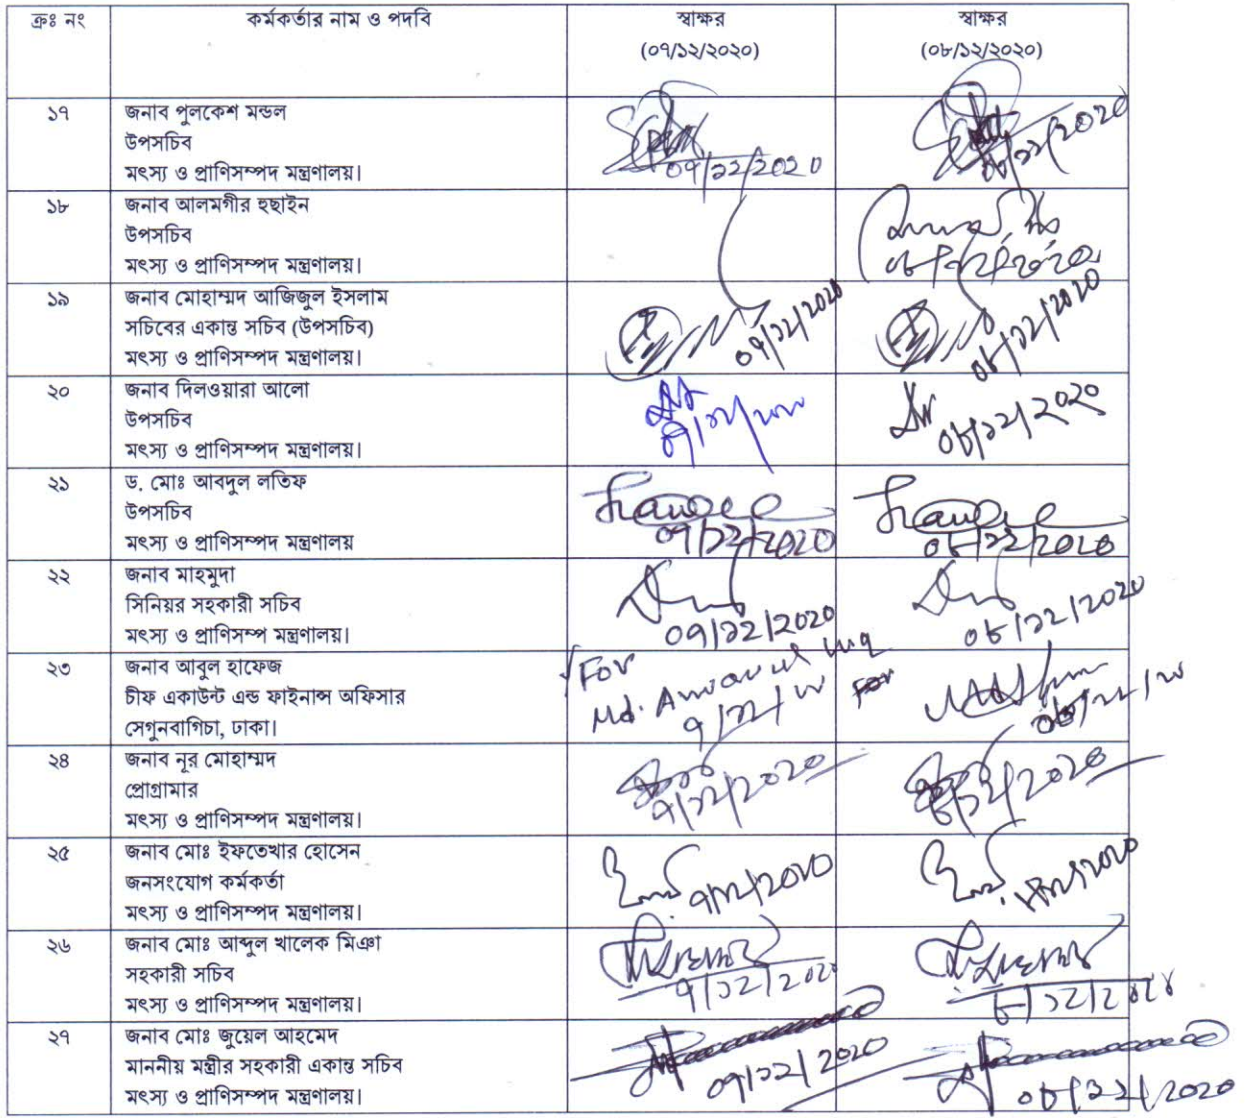 ক্রঃ নং কর্মকর্তার নাম ও পদবি স্বাক্ষর স্বাক্ষর
(০৭/১২/২০২০) (০৮/১২/২০২০)
১৭ জনাব পুলকেশ মন্ডল
উপসচিব
মৎস্য ও প্রাণিসম্পদ মন্ত্রণালয়।
০৭/১২/২০২০ ০৮/১২/২০২০
১৮ জনাব আলমগীর হুছাইন
উপসচিব
মৎস্য ও প্রাণিসম্পদ মন্ত্রণালয়।
০৮/১২/২০২০
১৯ জনাব মোহাম্মদ আজিজুল ইসলাম
সচিবের একান্ত সচিব (উপসচিব)
মৎস্য ও প্রাণিসম্পদ মন্ত্রণালয়।
০৭/১২/২০২০ ০৮/১২/২০২০
২০ জনাব দিলওয়ারা আলো
উপসচিব
মৎস্য ও প্রাণিসম্পদ মন্ত্রণালয়।
০৮/১২/২০২০
২১ ড. মোঃ আবদুল লতিফ
উপসচিব
মৎস্য ও প্রাণিসম্পদ মন্ত্রণালয়
০৭/১২/২০২০ ০৮/১২/২০২০
২২ জনাব মাহমুদা
সিনিয়র সহকারী সচিব
মৎস্য ও প্রাণিসম্প মন্ত্রণালয়।
০৭/১২/২০২০ ০৮/১২/২০২০
২৩ জনাব আবুল হাফেজ
চীফ একাউন্ট এন্ড ফাইনান্স অফিসার
সেগুনবাগিচা, ঢাকা।
For
Md.
For
২৪ জনাব নূর মোহাম্মদ
প্রোগ্রামার
মৎস্য ও প্রাণিসম্পদ মন্ত্রণালয়।
৭/১২/২০২০ ৮/১২/২০২০
২৫ জনাব মোঃ ইফতেখার হোসেন
জনসংযোগ কর্মকর্তা
মৎস্য ও প্রাণিসম্পদ মন্ত্রণালয়।
৭/১২/২০২০
২৬ জনাব মোঃ আব্দুল খালেক মিঞা
সহকারী সচিব
মৎস্য ও প্রাণিসম্পদ মন্ত্রণালয়।
৭/১২/২০২০
২৭ জনাব মোঃ জুয়েল আহমেদ
মাননীয় মন্ত্রীর সহকারী একান্ত সচিব
মৎস্য ও প্রাণিসম্পদ মন্ত্রণালয়।
০৭/১২/২০২০ ০৮/১২/২০২০